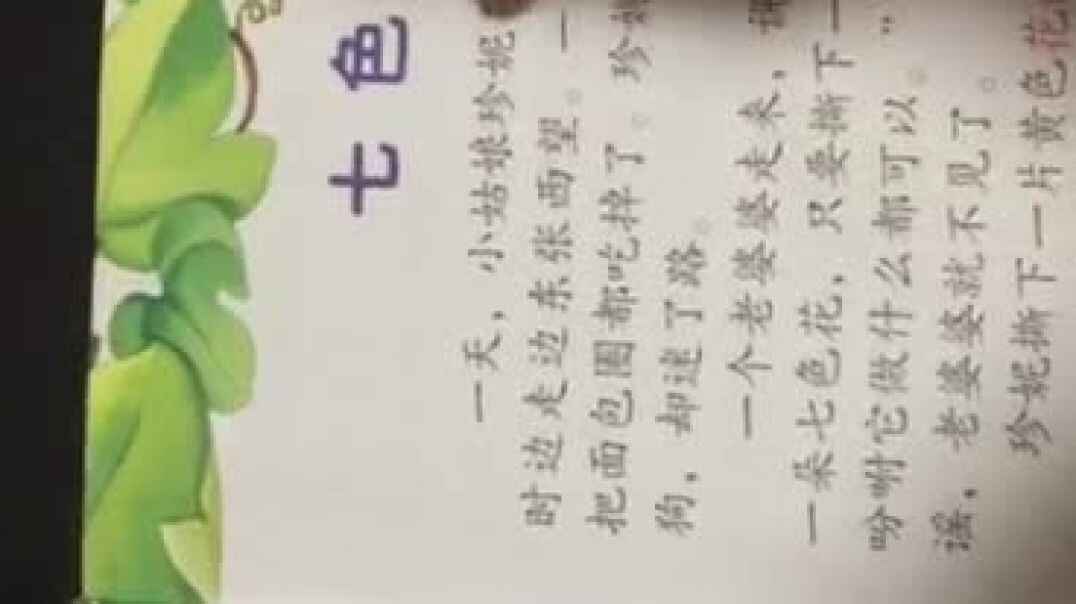 七色
一天，小姑娘珍妮
时边走边东张西望。一
把面包圈都吃掉了。珍
狗，却迷了路。
一个老婆婆走来，
一朵七色花，只要撕下一
吩咐它做什么都可以。”
谣，老婆婆就不见了。
珍妮撕下一片黄色花